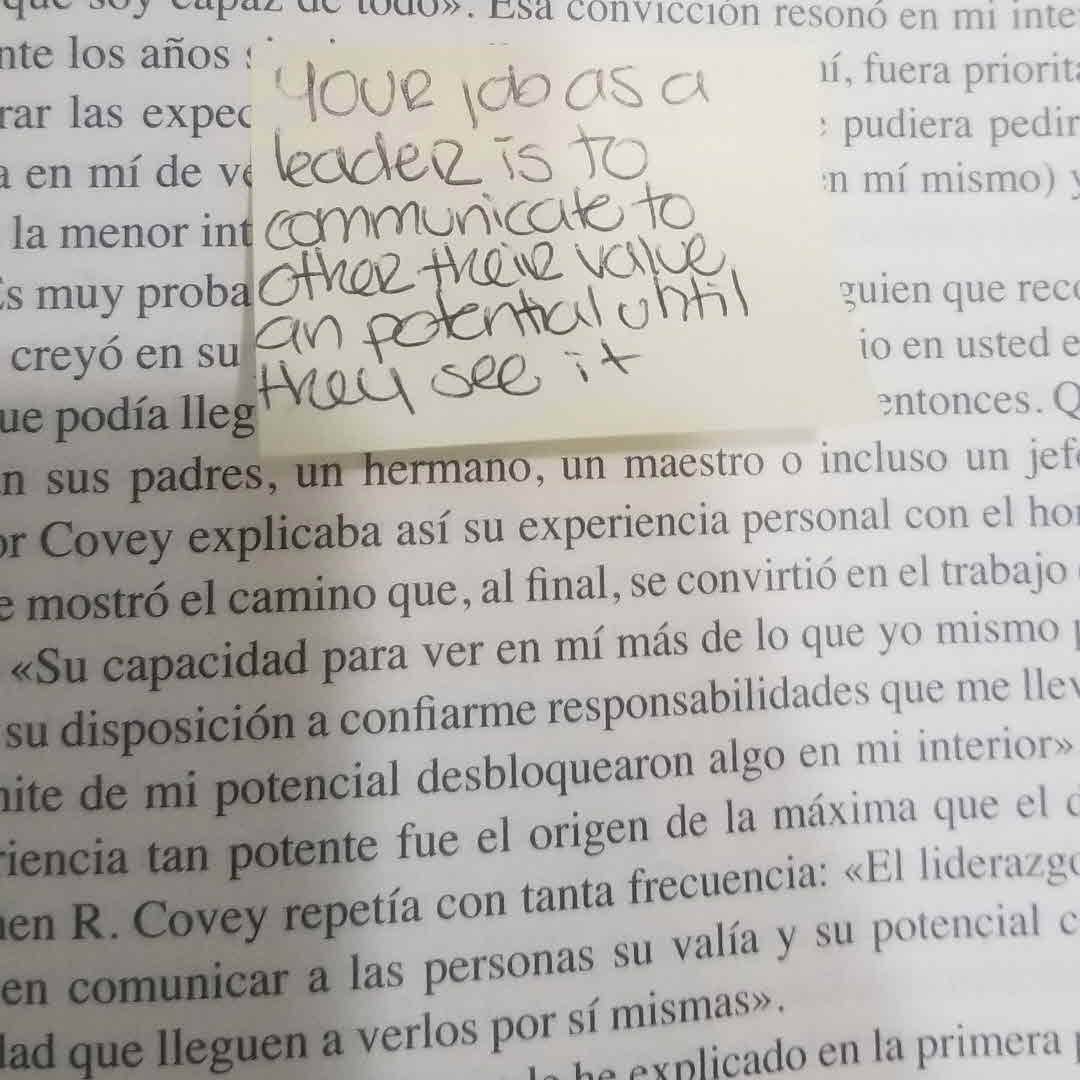 que soy capaz de todo». Esa convicción resonó en mi
los años
YOUR job as a
leader is to
communicate to
other their value
an potential until
they see it
fuera
rar las
pudiera pedir
en mí de
mí mismo) y
la menor
Es muy
guien que
creyó en su
en usted
que podía
entonces.
sus padres, un hermano, un maestro o incluso un
Covey explicaba así su experiencia personal con el
mostró el camino que, al final, se convirtió en el trabajo
«Su capacidad para ver en mí más de lo que yo mismo
su disposición a confiarme responsabilidades que me
mite de mi potencial desbloquearon algo en mi interior»
riencia tan potente fue el origen de la máxima que el
hen R. Covey repetía con tanta frecuencia: «El
en comunicar a las personas su valía y su potencial
dad que lleguen a verlos por sí mismas».
he explicado en la primera